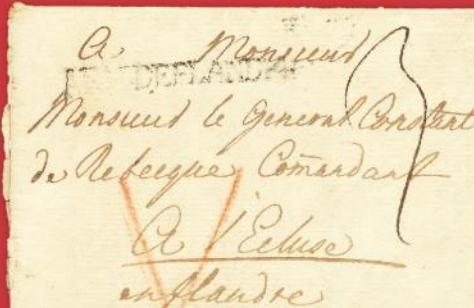 A Monsieur
Monsieur le General Constant
de Rebecque Com̄andant
A l'Ecluse
en flandre